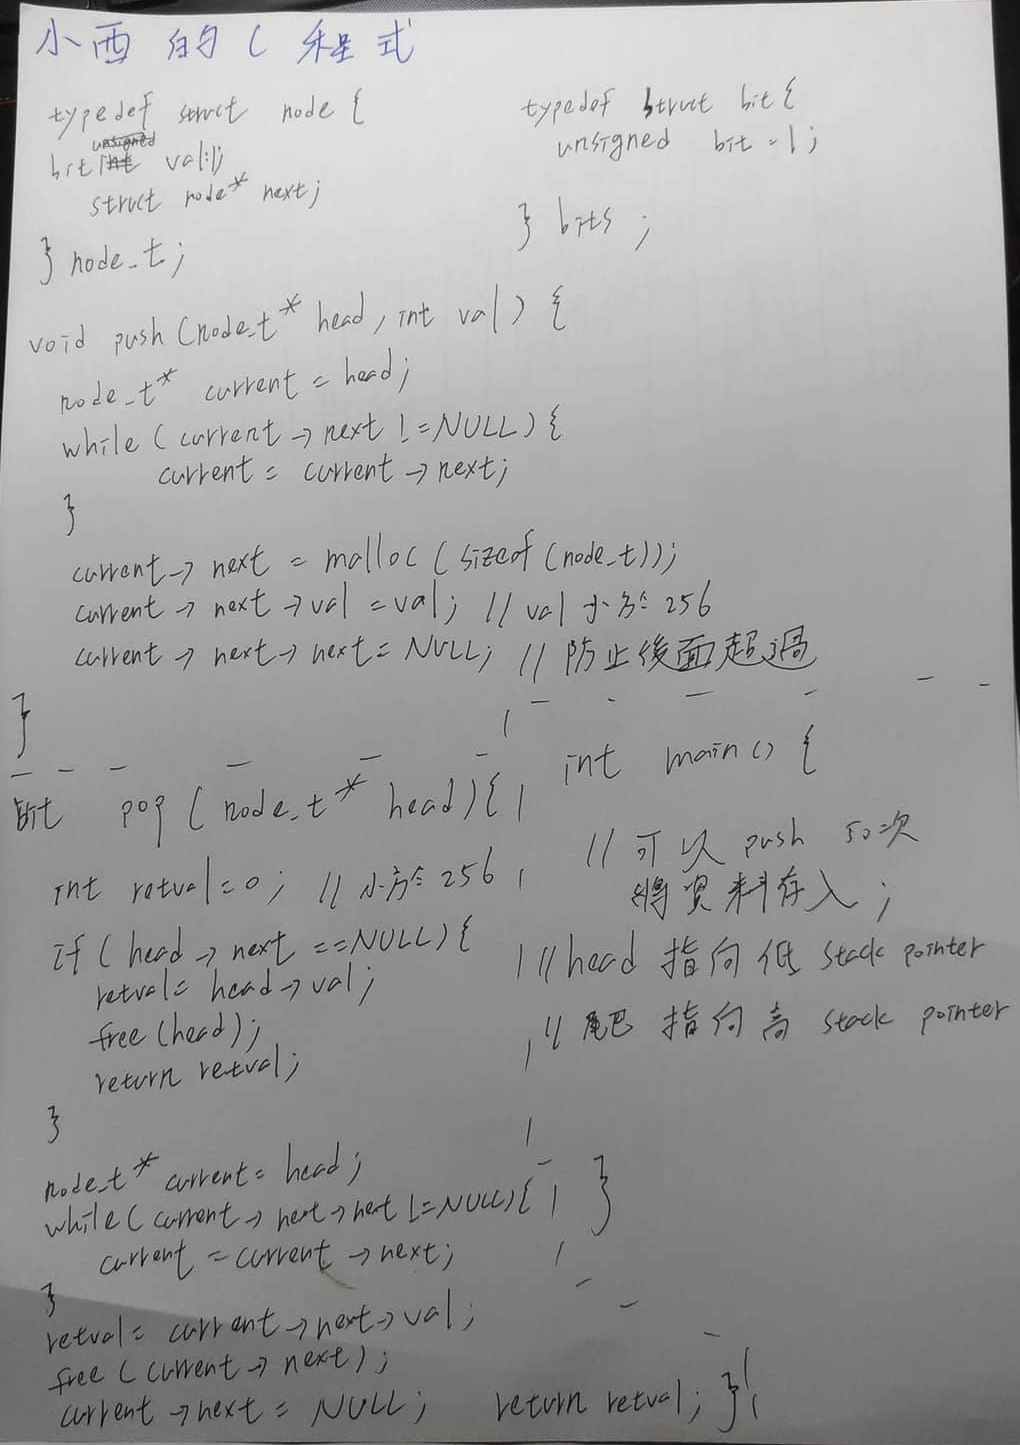 小西 的 C 程式
typedef struct node {
bit val:1;
struct node* next;
} node_t;
typedef struct bit {
unsigned bit = 1;
} bits ;
void push (node_t* head, int val) {
node_t* current = head;
while (current → next != NULL) {
current = current → next;
}
current → next = malloc (sizeof (node_t));
current → next → val = val; // val 小於 256
current → next → next = NULL; // 防止後面超過
}
bit pop (node_t* head) {
int retval = 0; // 小於 256
if (head → next == NULL) {
retval = head → val;
free (head);
return retval;
}
node_t* current = head;
while (current → next → next != NULL) {
current = current → next;
}
retval = current → next → val;
free (current → next);
current → next = NULL; return retval; }
int main () {
// 可以 push 50次
將資料存入 ;
// head 指向低 stack pointer
// 尾巴 指向高 stack pointer
}